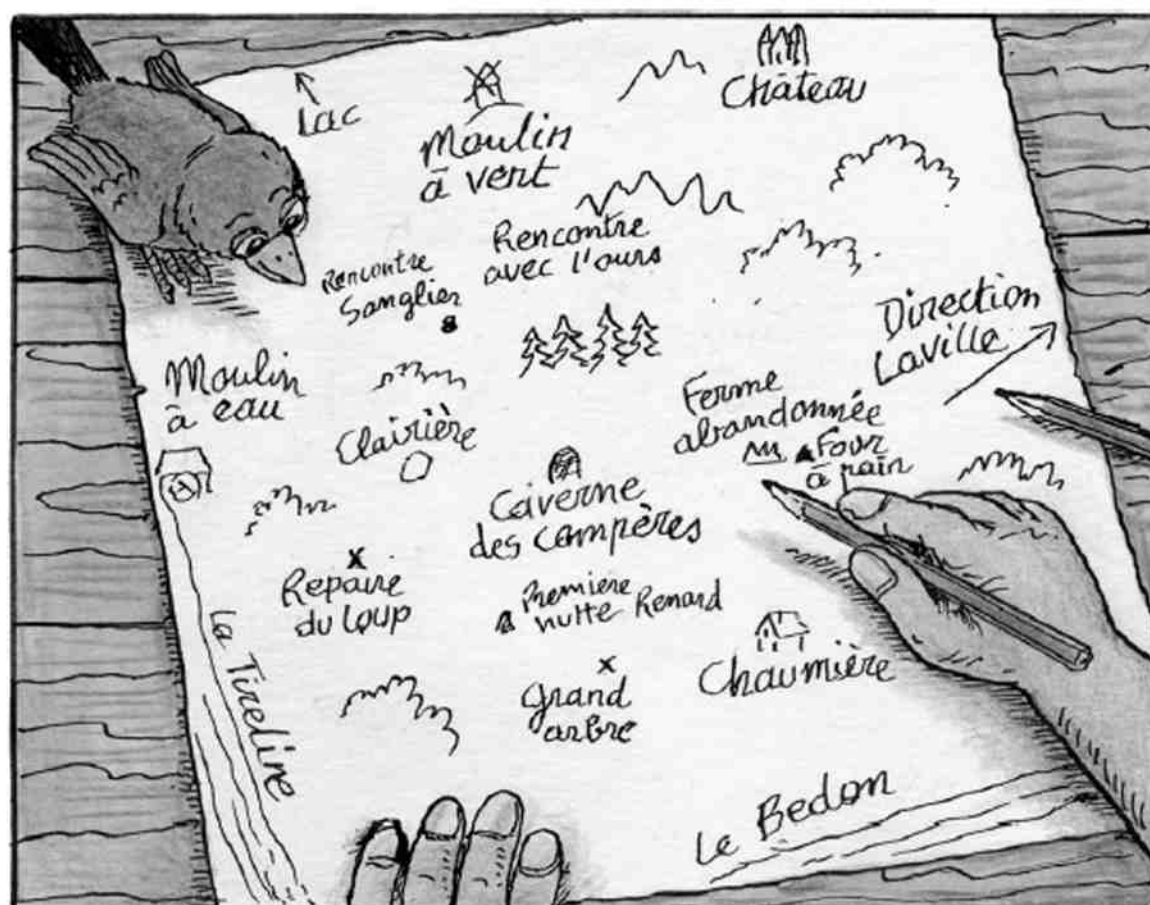 Lac
Moulin
à vent
Château
Rencontre
avec l'ours
Rencontre
Sanglier
Direction
Laville
Moulin
à eau
Clairière
Ferme
abandonnée
Four
à pain
Caverne
des compères
Repaire
du Loup
Première
hutte Renard
Grand
arbre
Chaumière
La Tirelire
Le Bedon